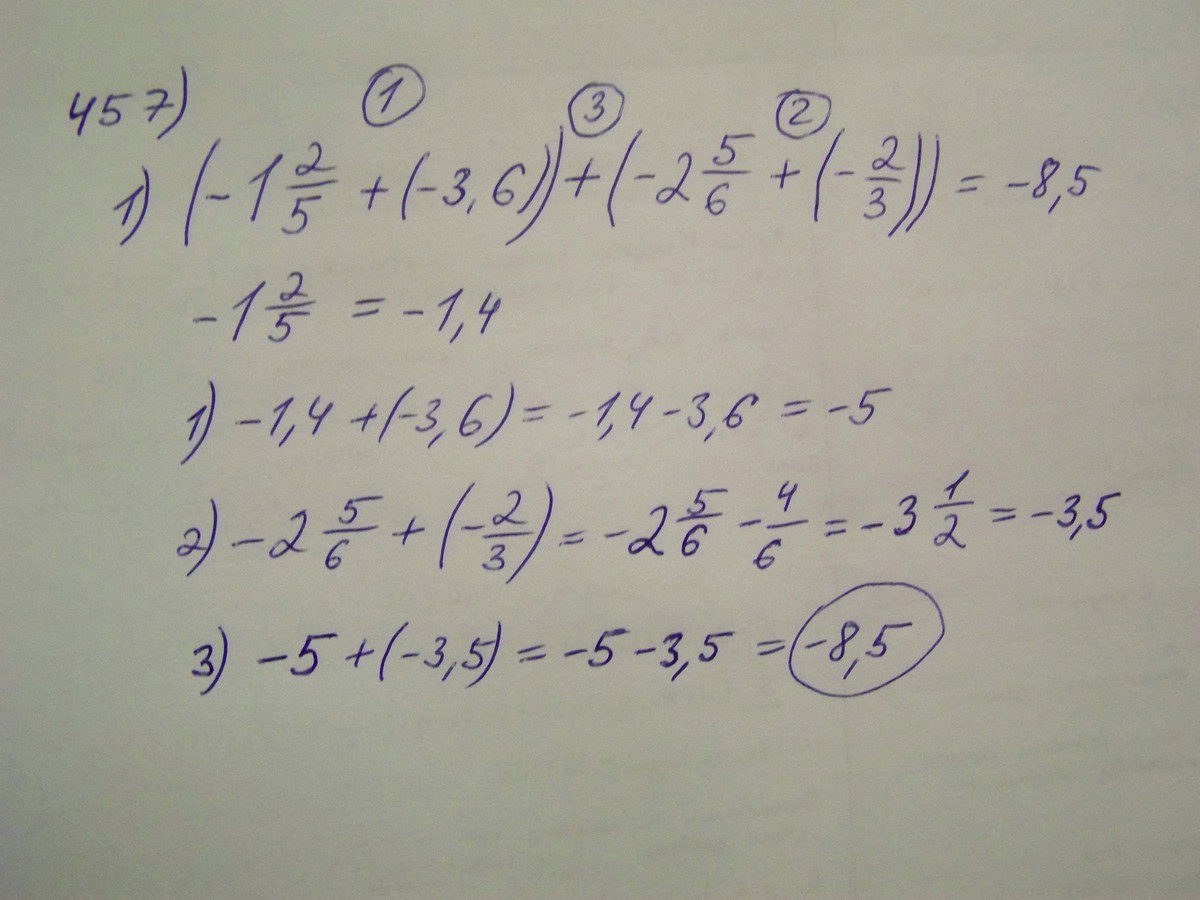 457)
① ③ ②
1) (-1 2/5 + (-3,6)) + (-2 5/6 + (-2/3)) = -8,5
-1 2/5 = -1,4
1) -1,4 + (-3,6) = -1,4 - 3,6 = -5
2) -2 5/6 + (-2/3) = -2 5/6 - 4/6 = -3 1/2 = -3,5
3) -5 + (-3,5) = -5 - 3,5 = -8,5